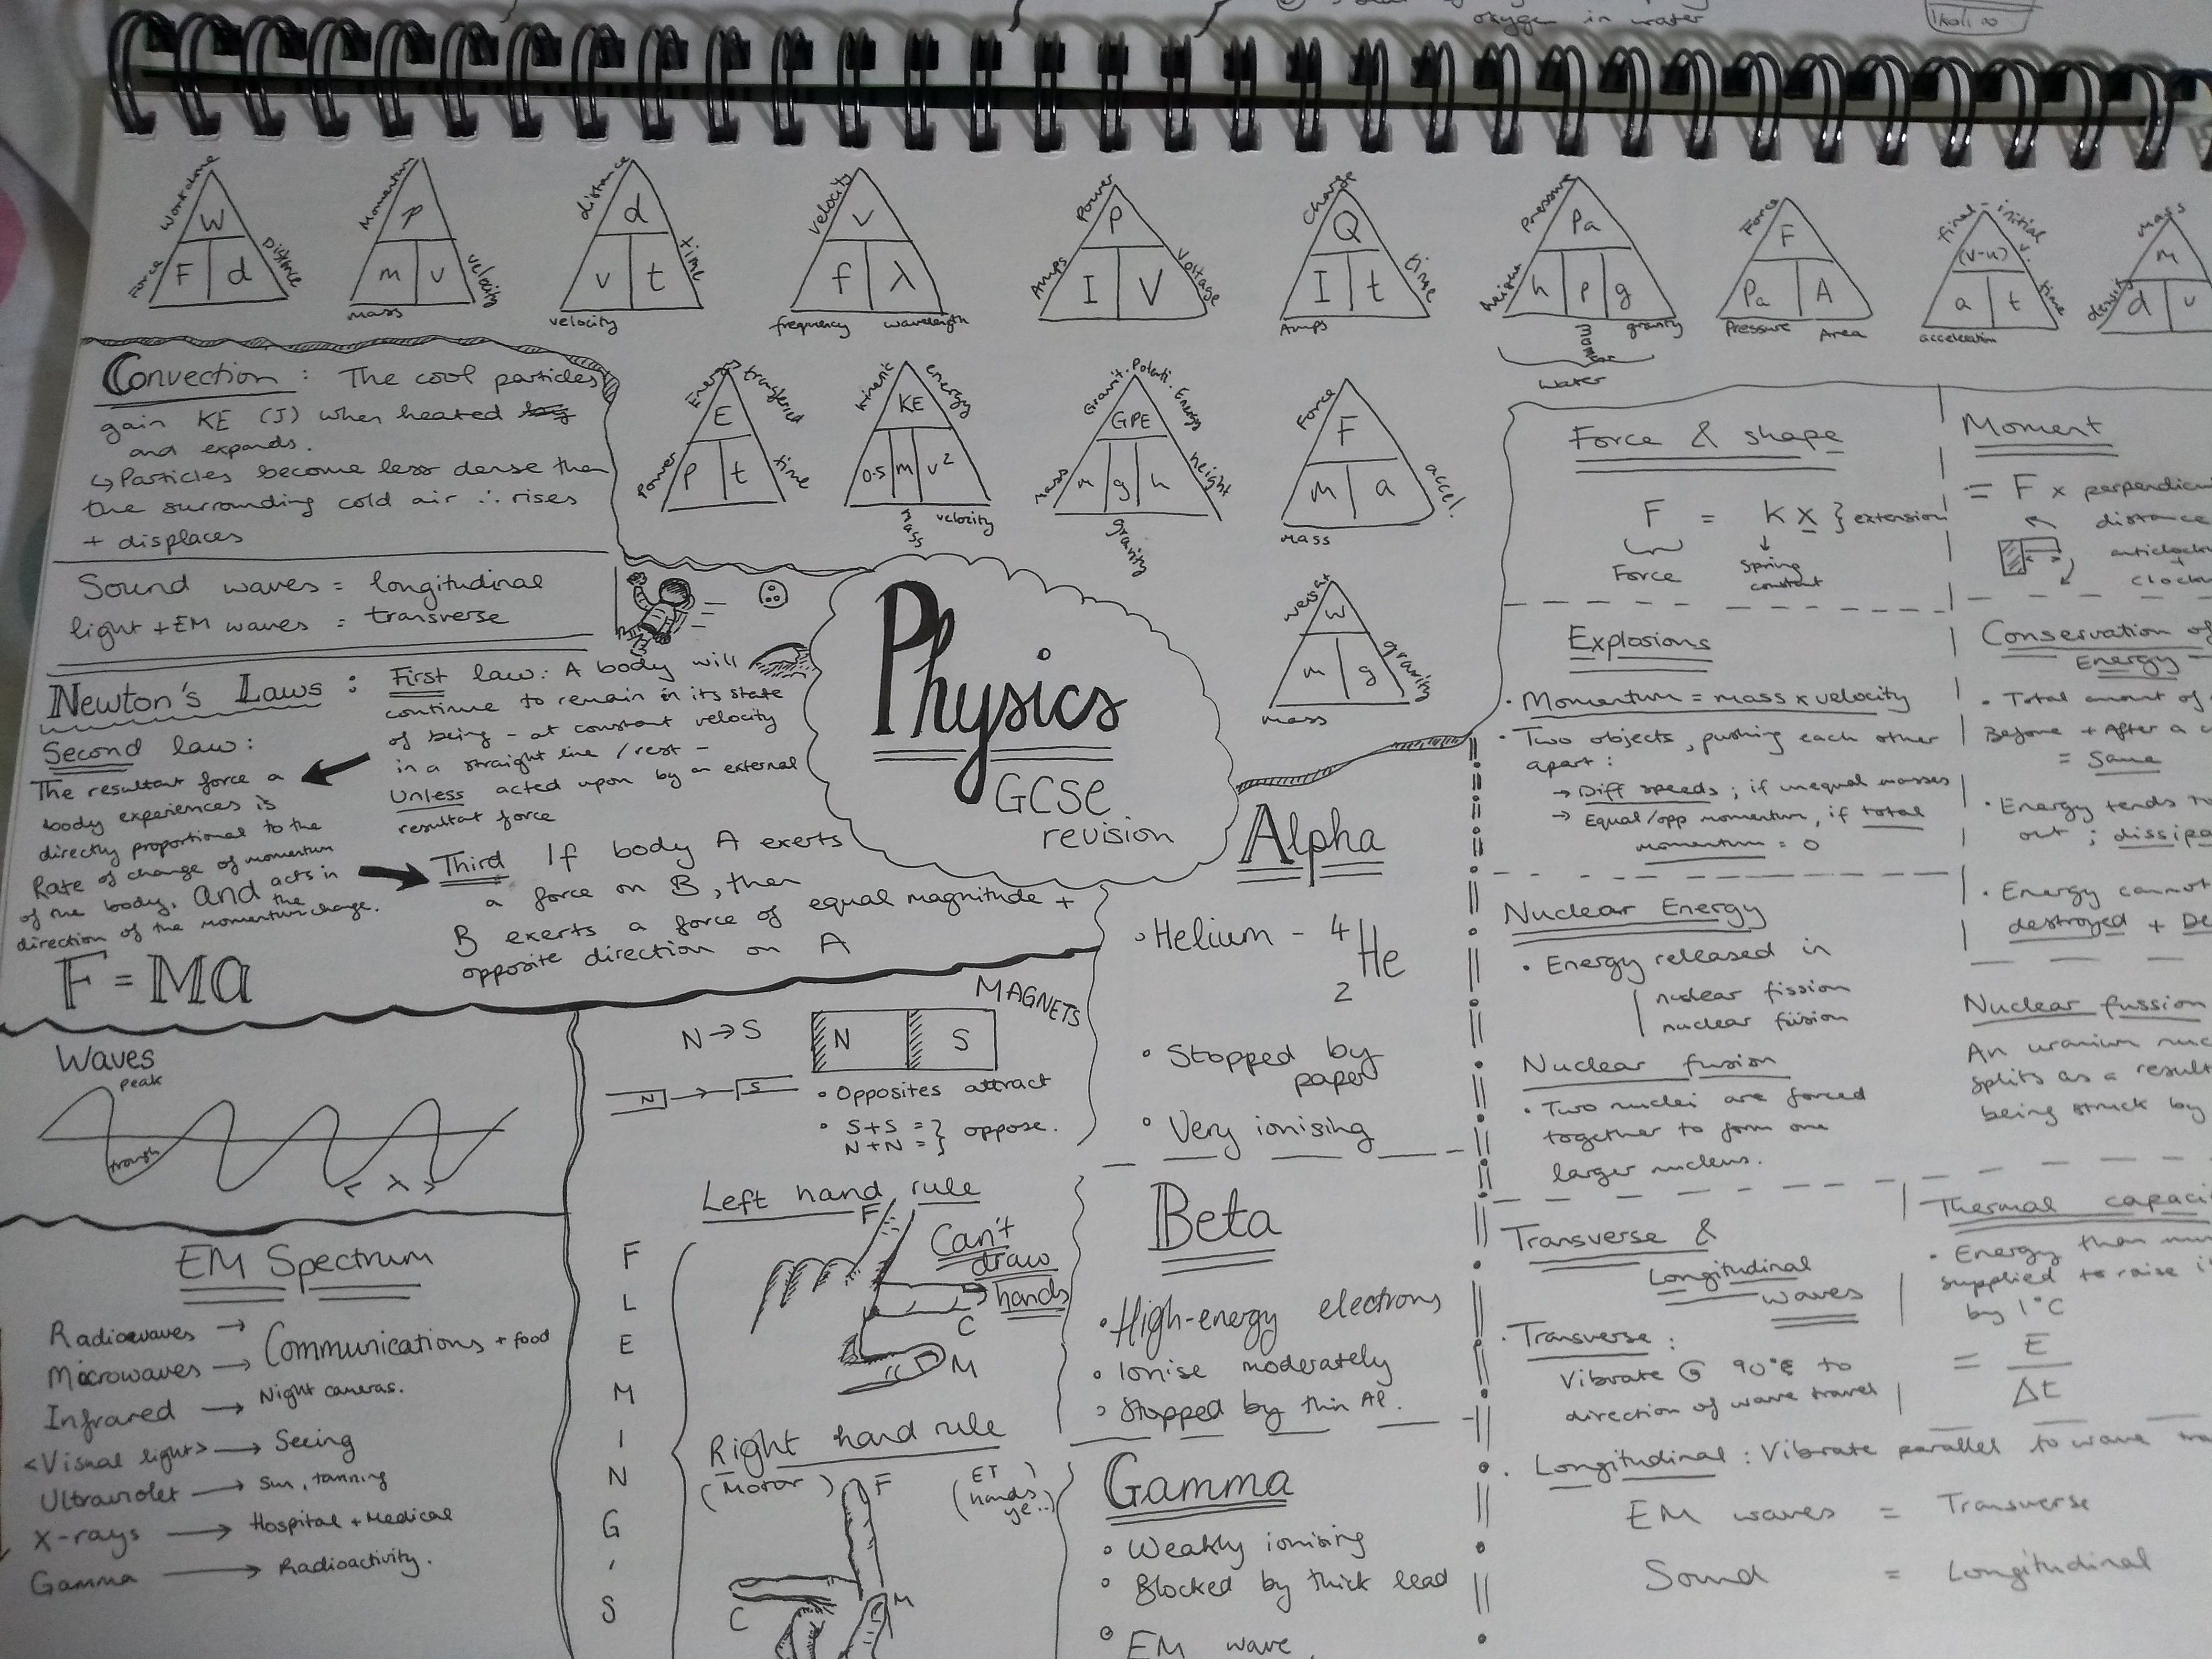 oxygen in water
Work done
W
F d
Force
Distance
Momentum
P
m v
mass
velocity
distance
d
v t
velocity
time
velocity
v
f λ
frequency
wavelength
Power
P
I V
Amps
Voltage
Charge
Q
I t
Amps
time
Pressure
Pa
h p g
height
gravity
water
Force
F
Pa A
Pressure
Area
final - initial v.
(v-u)
a t
acceleration
time
Mass
M
d v
density
Energy transferred
E
P t
Power
time
kinetic energy
KE
0.5 m v²
mass
velocity
Gravit. Potenti. Energy
GPE
m g h
Mass
gravity
height
Force
F
m a
mass
accel.
weight
W
m g
mass
gravity
Convection : The cool particles
gain KE (J) when heated
and expands.
↳ Particles become less dense then
the surrounding cold air ∴ rises
+ displaces
Sound waves = longitudinal
light + EM waves = transverse
Newton's Laws :
First law: A body will
continue to remain in its state
of being - at constant velocity
in a straight line / rest -
Unless acted upon by an external
resultat force
Second law:
The resultat force a
body experiences is
directly proportional to the
Rate of change of momentum
of the body, and acts in the
direction of the momentum change.
F = Ma
Third If body A exerts
a force on B, then
B exerts a force of equal magnitude +
opposite direction on A
Physics
GCSE
revision
Waves
peak
trough
< λ >
EM Spectrum
Radiowaves →
Microwaves → Communications + food
Infrared → Night cameras.
<Visual light> → Seeing
Ultraviolet → Sun, tanning
X-rays → Hospital + Medical
Gamma → Radioactivity.
MAGNETS
N → S
N S
N → S
• Opposites attract
• S+S = } oppose.
N+N = }
FLEMING'S
Left hand rule
F
Can't
draw
hands
C
M
Right hand rule
(Motor)
F
(ET
hands
ye..)
C
M
Alpha
• Helium - 4
He
2
• Stopped by
paper
• Very ionising
Beta
• High-energy electrons
• Ionise moderately
• Stopped by thin Al.
Gamma
• Weakly ionising
• Blocked by thick lead
• EM wave
Force & shape
F = k x } extension
Force
Spring
constant
Explosions
• Momentum = mass x velocity
• Two objects, pushing each other
apart :
→ Diff speeds ; if unequal masses
→ Equal/opp momentum, if total
momentum = 0
Nuclear Energy
• Energy released in
nuclear fission
nuclear fusion
Nuclear fusion
• Two nuclei are forced
together to form one
larger nucleus.
Transverse &
Longitudinal
waves
• Transverse :
Vibrate @ 90° to
direction of wave travel
• Longitudinal : Vibrate parallel to wave
EM waves = Transverse
Sound = Longitudinal
Moment
= F x
distance
Conservation of
Energy
• Total amount of
Before + After a
= Same
• Energy tends to
out ;
• Energy cannot
destroyed +
Nuclear fussion
An uranium
splits as a result
being struck by
Thermal
• Energy than
supplied to raise
by 1°C
= E
Δt